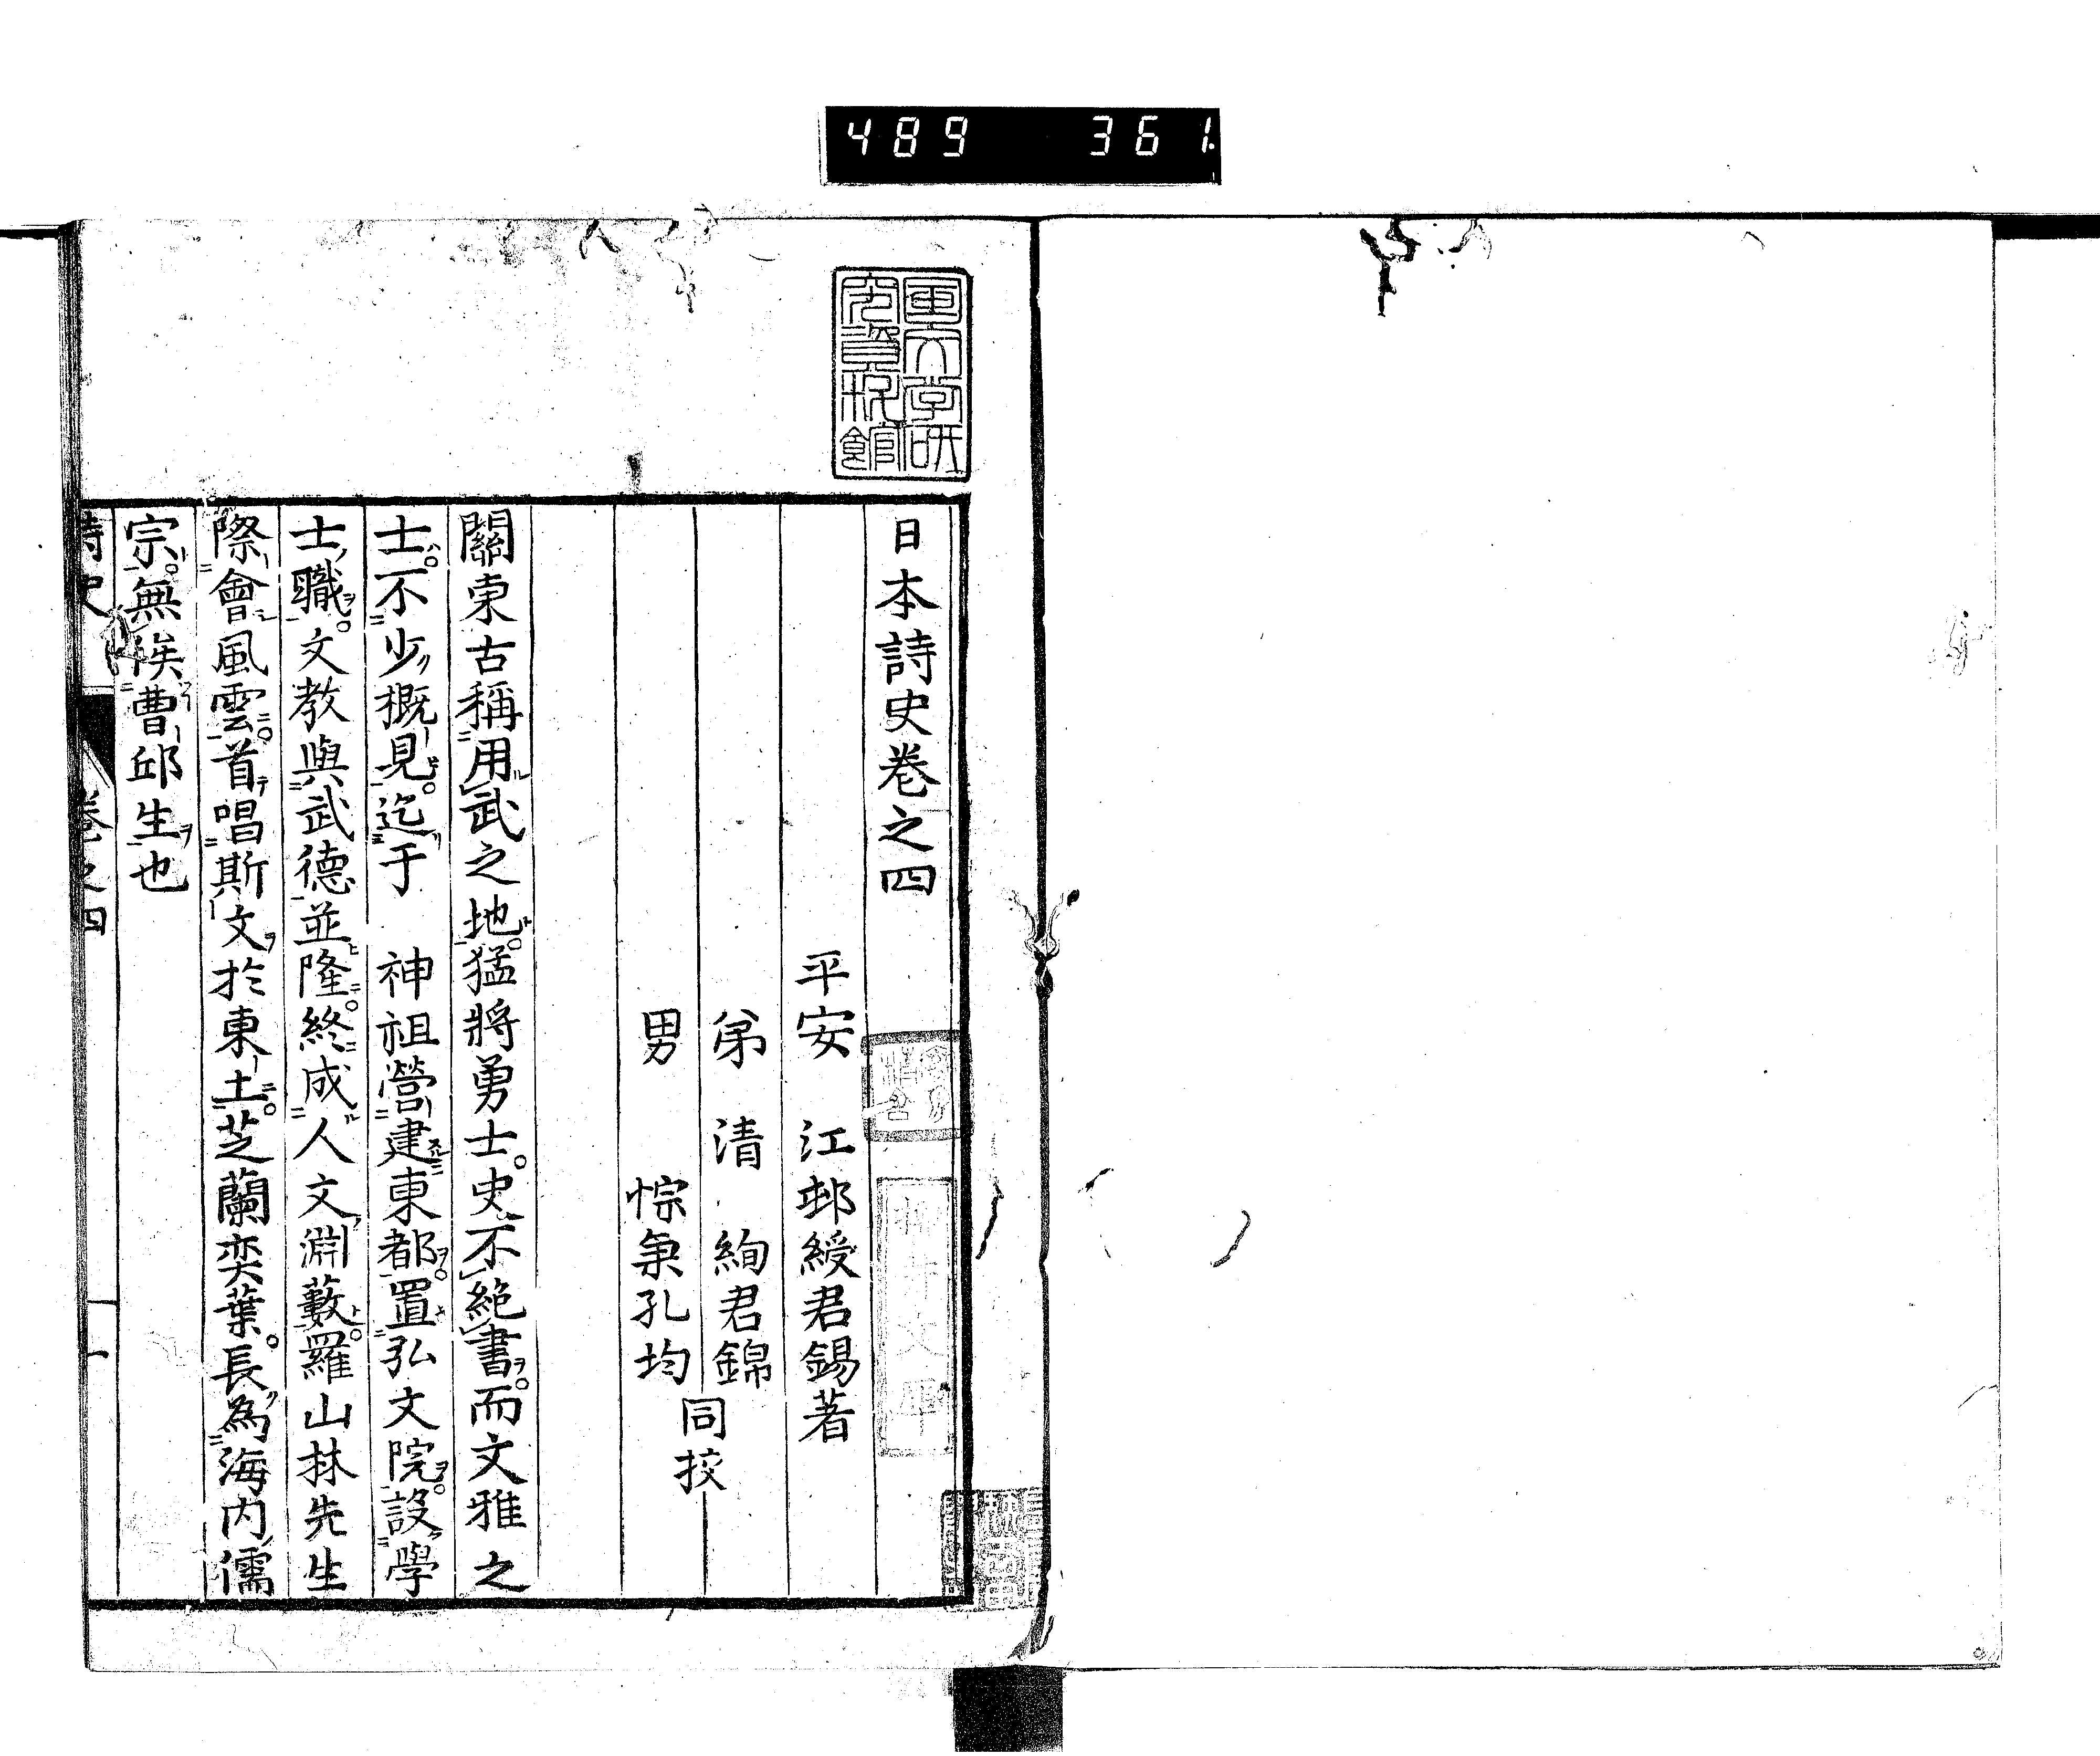 489 361
国文学研
究資料館
日本詩史卷之四
平安 江邨綬君錫著
弟 清 絢君錦
男 悰秉孔均
同挍
關東古稱用武之地。猛將勇士。史不絶書。而文雅之
士。不少概見。迄于 神祖營建東都。置弘文院。設學
士職。文教與武德並隆。終成人文淵藪。羅山林先生
際會風雲。首唱斯文於東土。芝蘭奕葉。長為海内儒
宗。無俟曹邱生也
詩史 卷之四 一